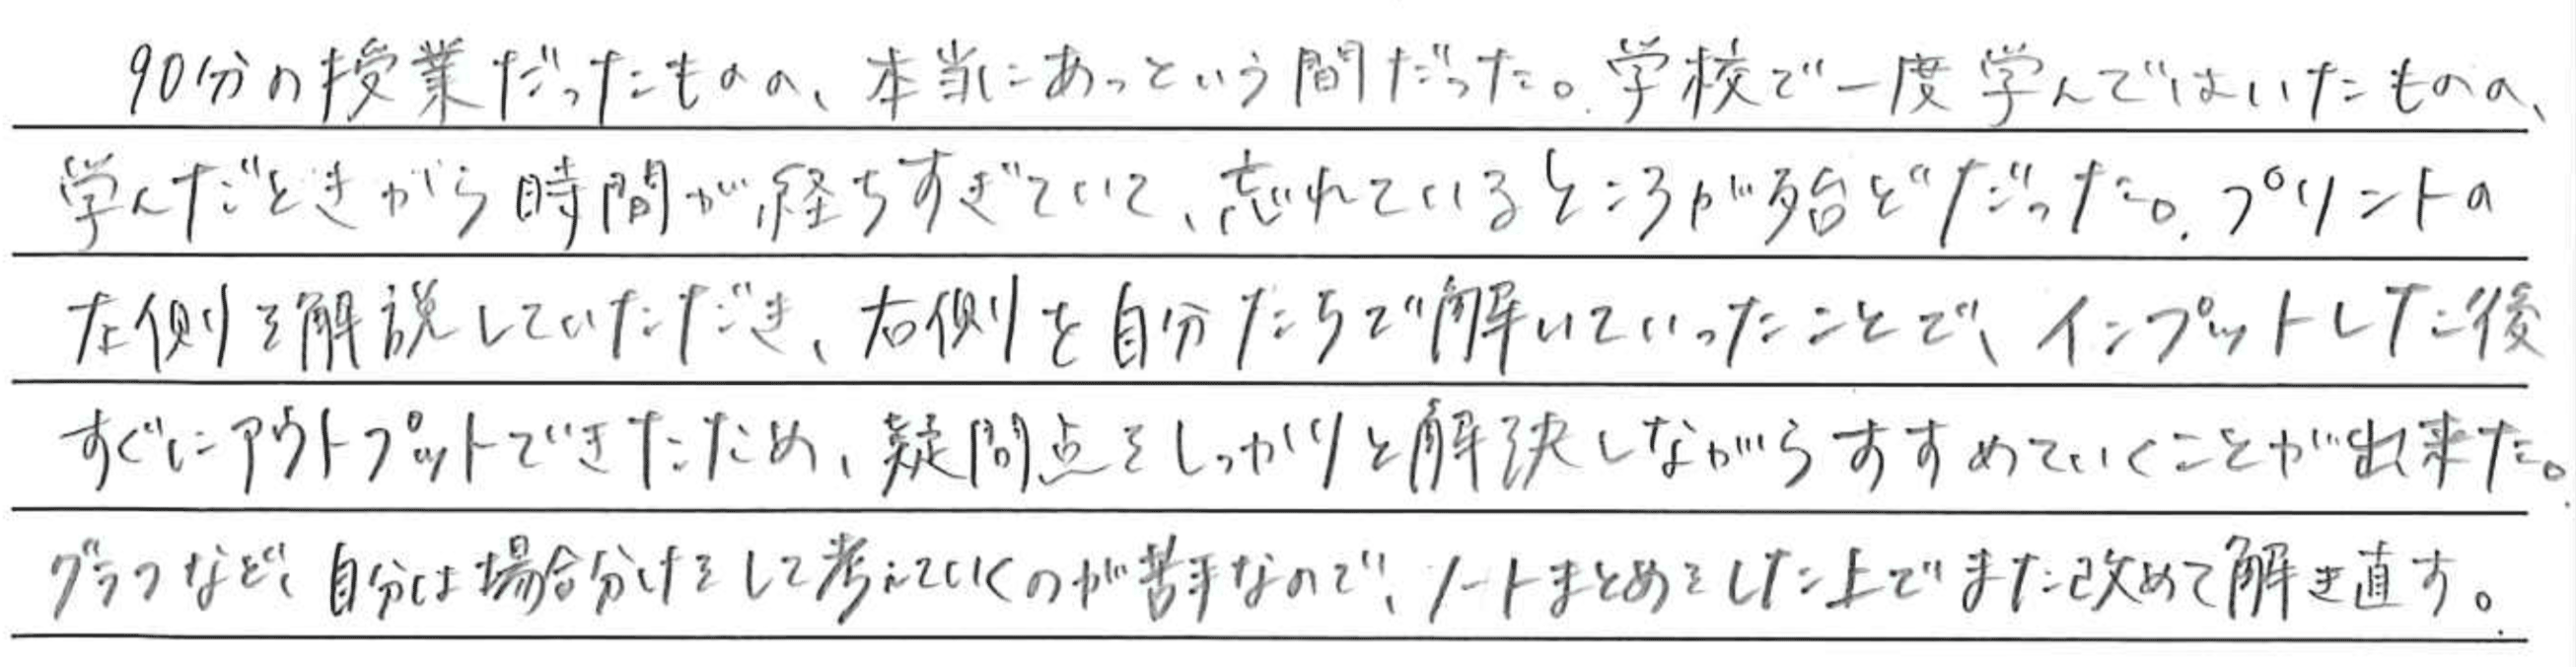 90分の授業だったものの、本当にあっという間だった。学校で一度学んではいたものの、
学んだときから時間が経ちすぎていて、忘れているところが殆どだった。プリントの
左側を解説していただき、右側を自分たちで解いていったことで、インプットした後
すぐにアウトプットできたため、疑問点をしっかりと解決しながらすすめていくことが出来た。
グラフなど、自分は場合分けをして考えていくのが苦手なので、ノートまとめをした上でまた改めて解き直す。